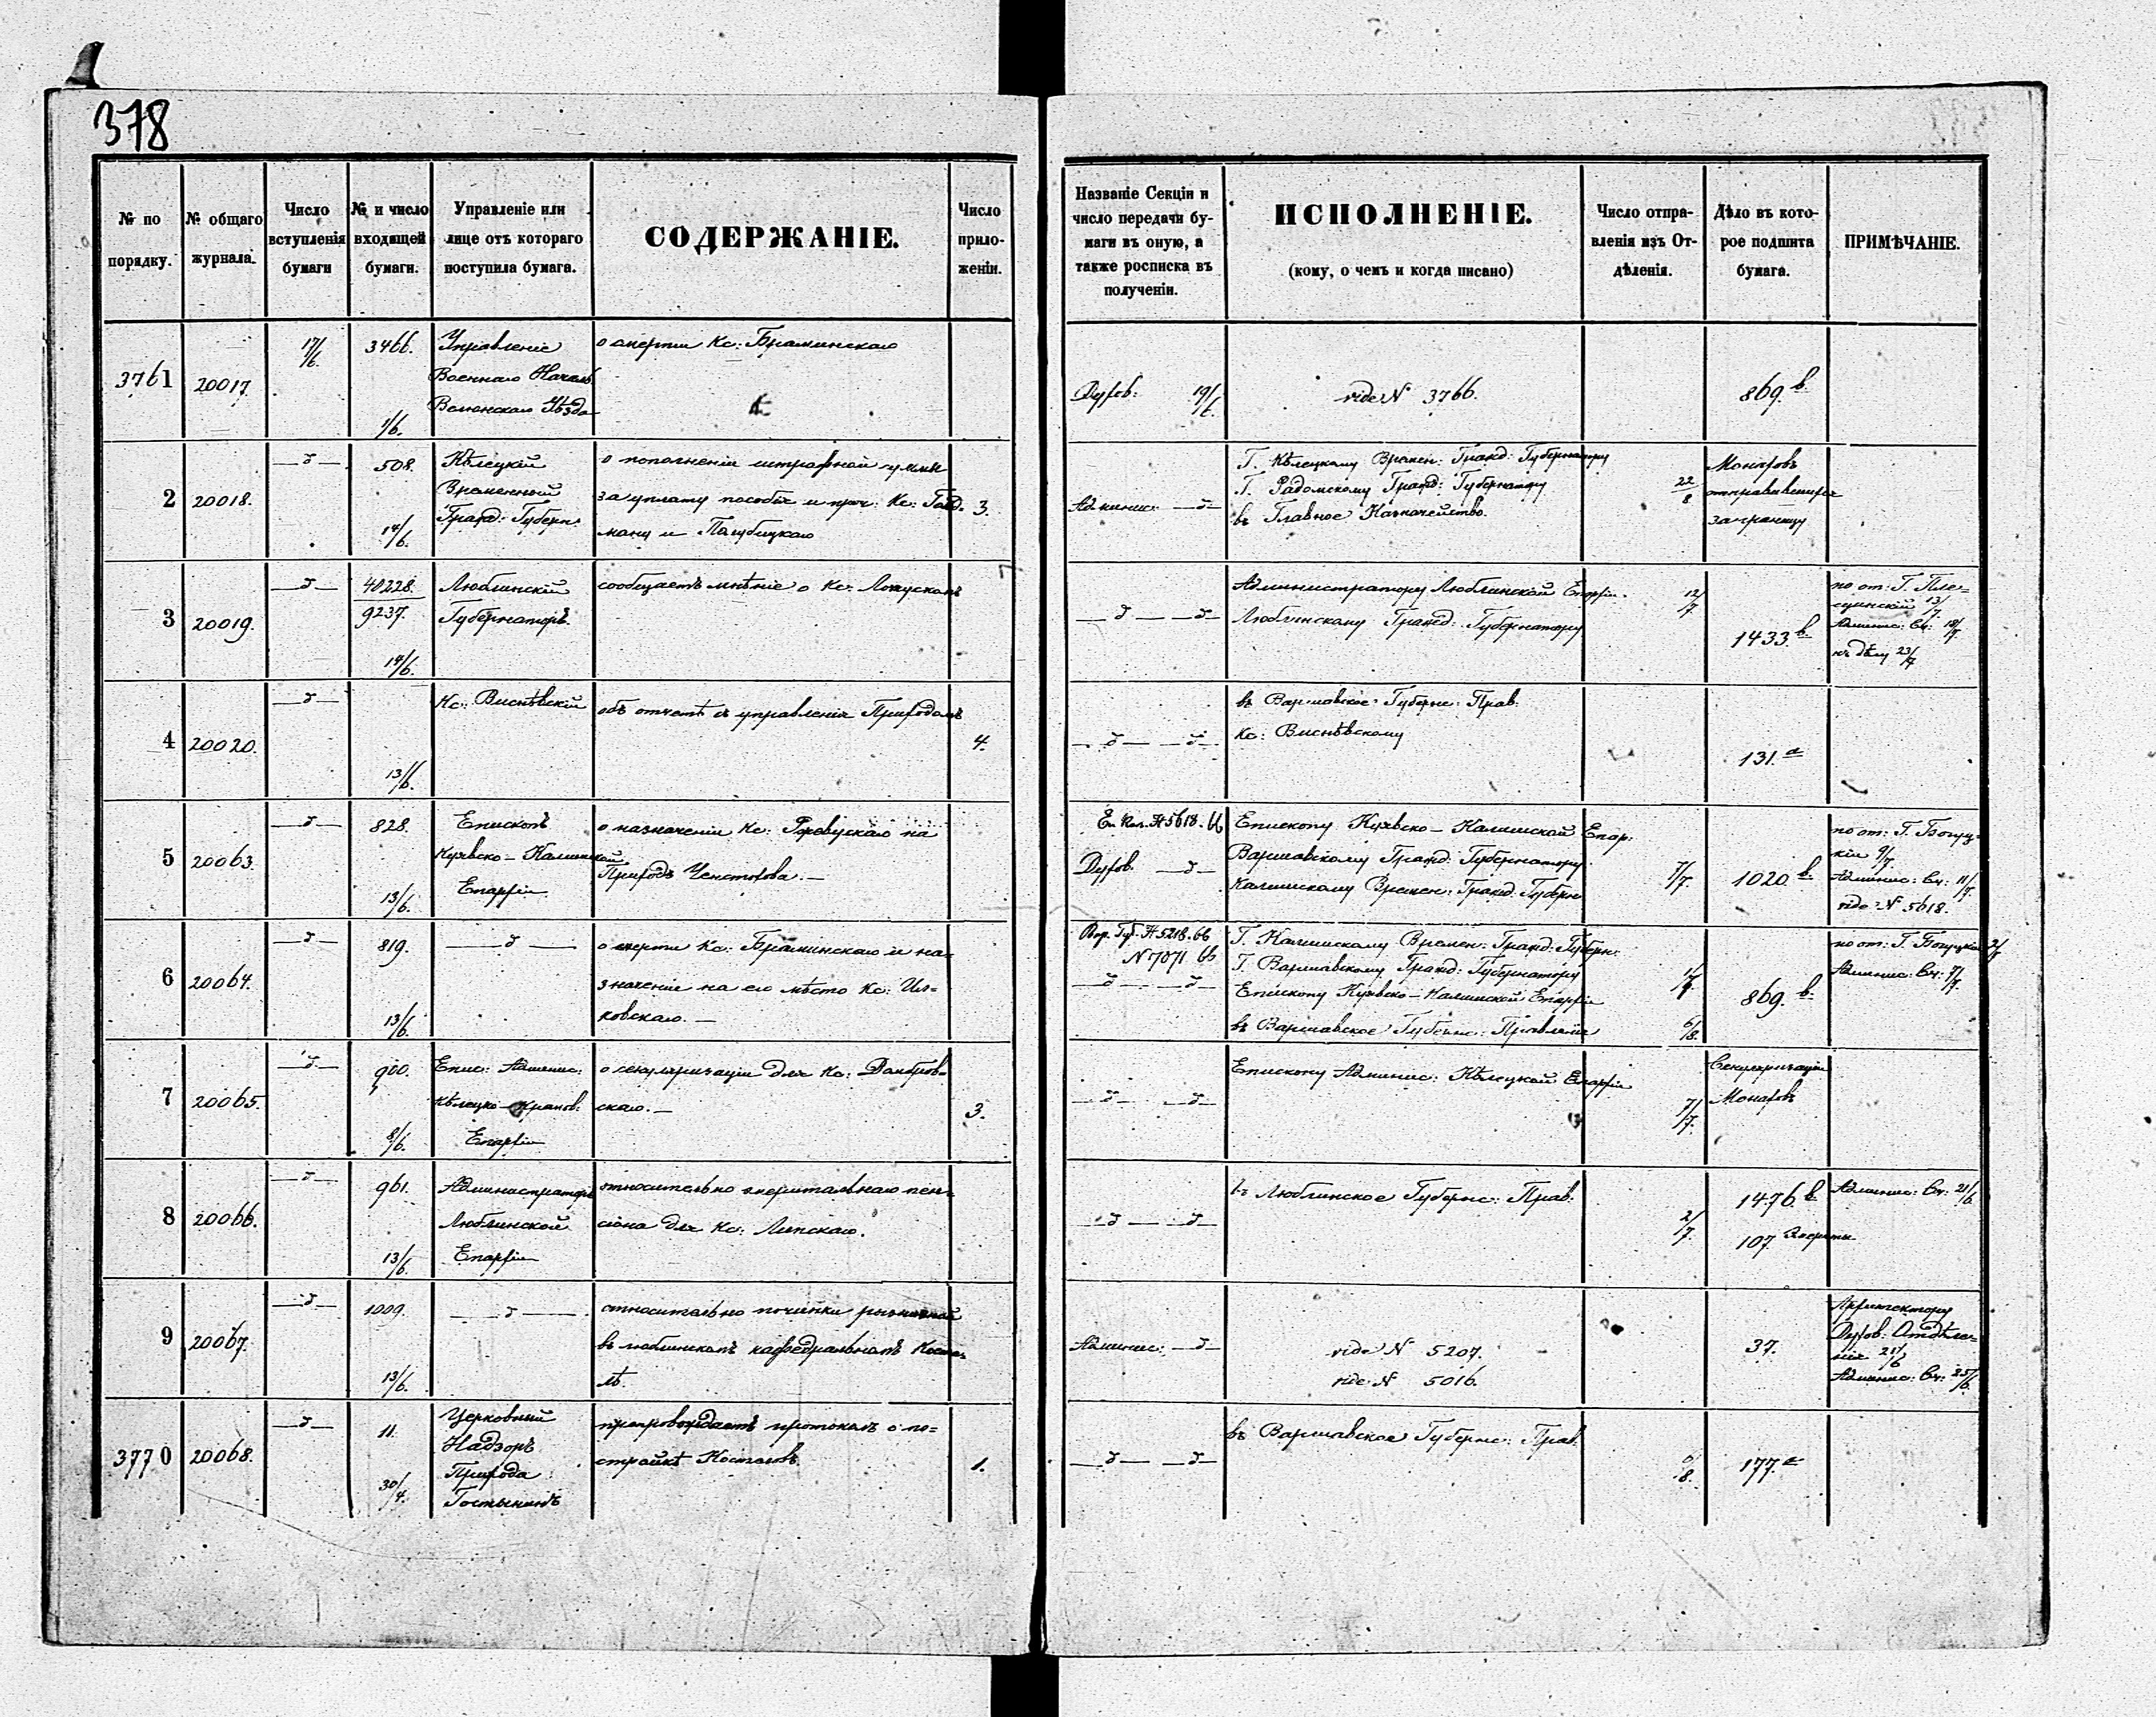 378
№ по порядку.
№ общаго журнала.
Число вступленія бумаги
№ и число входящей бумаги.
Управленіе или лице отъ котораго поступила бумага.
СОДЕРЖАНІЕ.
Число приложеніи.
Названіе Секціи и число передачи бумаги въ оную, а также росписка въ полученіи.
ИСПОЛНЕНІЕ.
(кому, о чемъ и когда писано)
Число отправленія изъ Отдѣленія.
Дѣло въ которое подшита бумага.
ПРИМѢЧАНІЕ.
3761 20017. 17/6. 3466. 1/6.
Управленіе
Военнаго Началь.
Велюнскаго Уѣзда
о смерти Кс: Браминскаго
Духов: 19/6.
vide N 3766.
869. b.
2 20018. —д— 508. 14/6.
Кѣлецкій
Временный
Гражд: Губерн:
о пополненіи штрафной суммы
за уплату пособія и проч: Кс: Голд- 3.
ману и Голубицкаго
Админис: —д—
Г. Кѣлецкому Времен: Гражд: Губернатору
Г. Радомскому Гражд: Губернатору
въ Главное Казначейство.
22/8
Монаховъ
отправившихся
заграницу
3 20019. —д— 40228. 9237. 14/6.
Люблинскій
Губернаторъ.
сообщаетъ мнѣніе о Кс:
—д— —д—
Администратору Люблинской Епархіи.
Люблинскому Гражд: Губернатору
12/7.
1433. b.
по от: Г. Пле=
щинскій 13/7
Админис: Сч: 18/7.
къ дѣлу 23/7
4 20020. —д— 13/6.
Кс: Виснѣвскій
объ отчетѣ съ управленія Приходомъ
4.
—д— —д—
въ Варшавское Губерн: Прав:
Кс: Виснѣвскому
131. a
5 20063. —д— 828. 13/6.
Епископъ
Куявско-Калишской
Епархіи
о назначеніи Кс: Ржевускаго на
Приходъ Ченстохова.—
Еп. Кал. N 5618. 66
Духов. —д—
Епископу Куявско-Калишской Епар:
Варшавскому Гражд: Губернатору
Калишскому Времен: Гражд: Губерн:
7/7.
1020. b.
по от: Г. Богуц=
кій 9/7.
Админис: Сч: 11/7.
vide N 5618.
6 20064. —д— 819. 13/6.
—д—
о смерти Кс: Браминскаго и на=
значеніе на его мѣсто Кс: Ил=
ковскаго.—
Вар. Губ. N 5218. 66
N 7071 66
—д— —д—
Г. Калишскому Времен: Гражд: Губерн:
Г. Варшавскому Гражд: Губернатору
Епископу Куявско-Калишской Епархіи
въ Варшавское Губернс: Правленіе
6/18.
869. b.
по от: Г. Богуцкій 2/7
Админис: Сч: 7/7.
7 20065. —д— 900. 8/6.
Епис: Админис:
Кѣлецко-Краков:
Епархіи
о секуляризаціи для Кс: Домбров=
скаго.—
3.
—д— —д—
Епископу Админис: Кѣлецкой Епархіи
7/7.
Секуляризаціи
Монаховъ
8 20066. —д— 961. 13/6.
Администраторъ
Люблинской
Епархіи
относительно эмеритальнаго пен=
сіона для Кс: Липскаго.
—д— —д—
въ Люблинское Губернс: Прав:
2/7.
1476. b.
107. Эмериты
Админис: Сч: 21/6
9 20067. —д— 1009. 13/6.
—д—
относительно починки
въ люблинскомъ кафедральномъ Косте=
лѣ.
Админис: —д—
vide N 5207.
vide N 5016.
37.
Архитектору
Духов: Отдѣле=
нія 21/6
Админис: Сч: 25/6.
3770 20068. —д— 11. 30/4.
Церковный
Надзоръ
Прихода
Гостынинъ
препровождаетъ протоколъ о по=
стройкѣ Костеловъ
1.
—д— —д—
въ Варшавское Губернс: Прав:
177. a